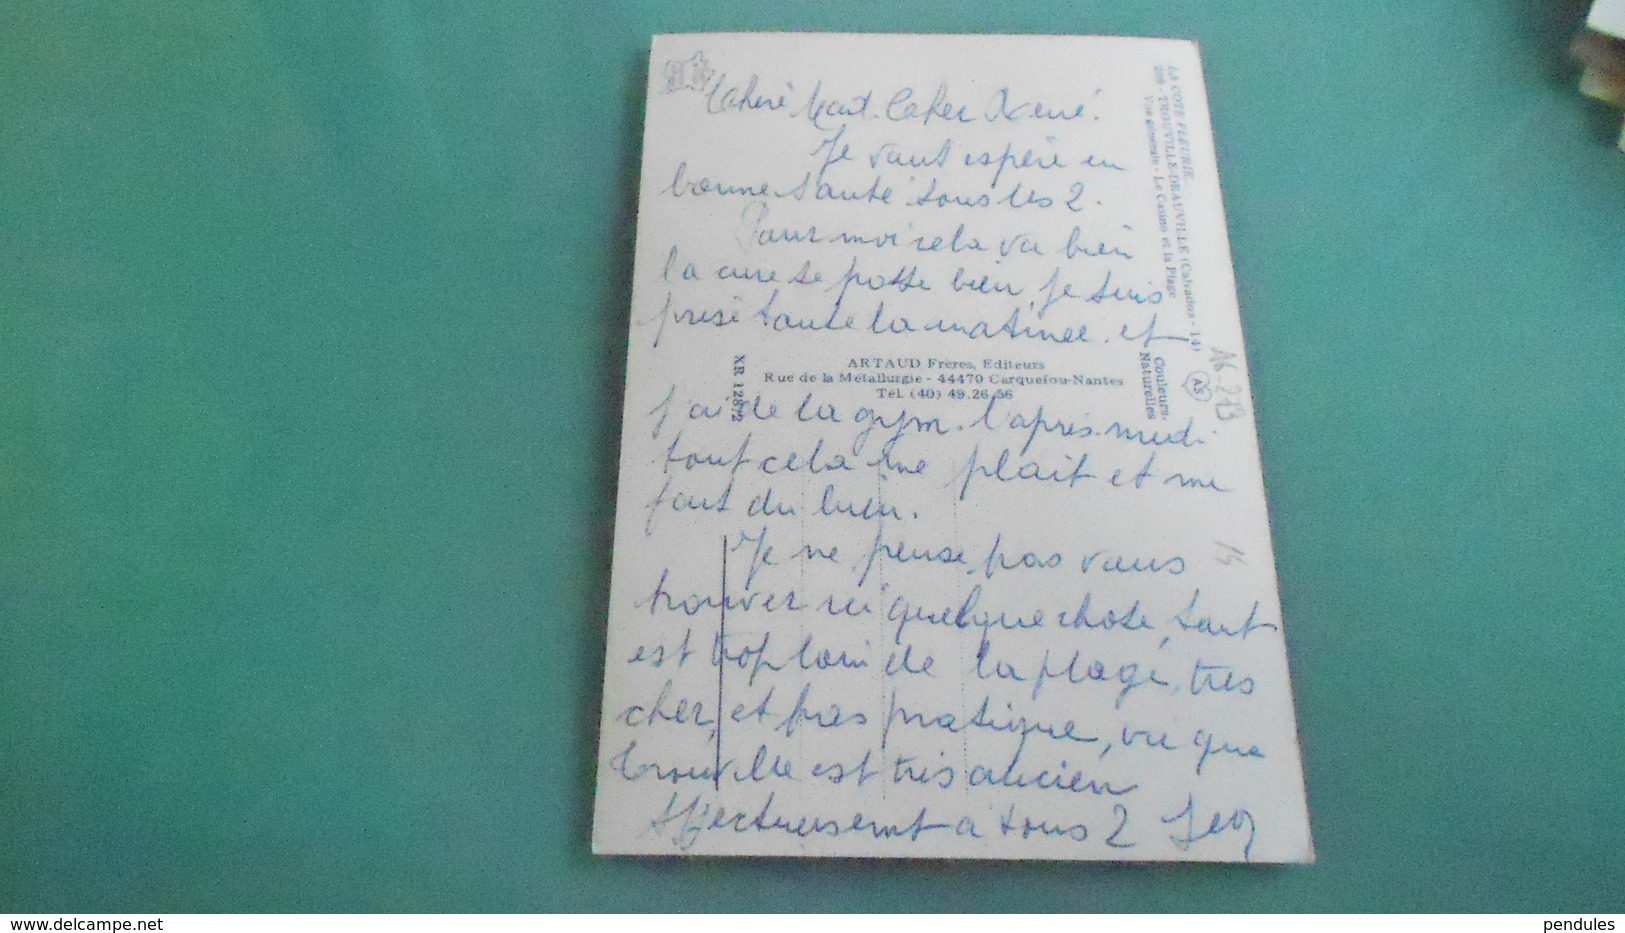 Je vous espère en
bonne santé tous les 2.
Pour moi cela va bien
la cure se passe bien, je suis
prise toute la matinée. et
j'ai de la gym. l'après-midi
tout cela me plait et me
fait du bien.
Je ne pense pas vous
trouver ici quelque chose, tout
est trop loin de la plage, très
cher, et pas pratique, vu que
Trouville est très ancien
Affectueusement à tous 2
LA COTE FLEURIE
209 - TROUVILLE-DEAUVILLE (Calvados - 14)
Vue générale - Le Casino et la Plage
Couleurs
Naturelles
AS
ARTAUD Frères, Editeurs
Rue de la Métallurgie - 44470 Carquefou-Nantes
Tél. (40) 49.26.56
XR 12872
16.213
14
www.delcampe.net
pendules